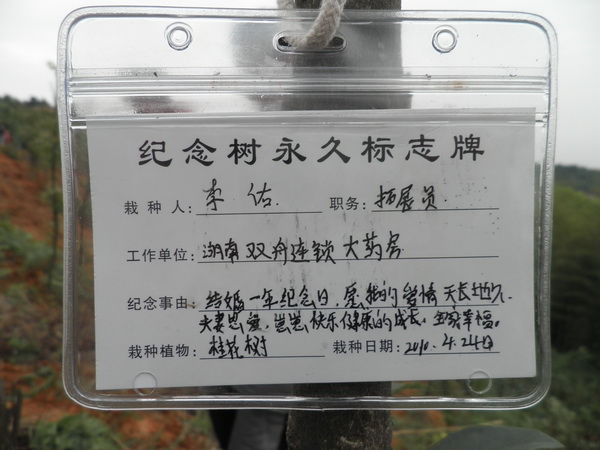 纪念树永久标志牌
栽种人：李佑 职务：拓展员
工作单位：湖南双舟连锁大药房
纪念事由：结婚一年纪念日，愿我们的爱情天长地久.
夫妻恩爱，崽崽快乐健康的成长，全家幸福。
栽种植物：桂花树 栽种日期：2010.4.24日